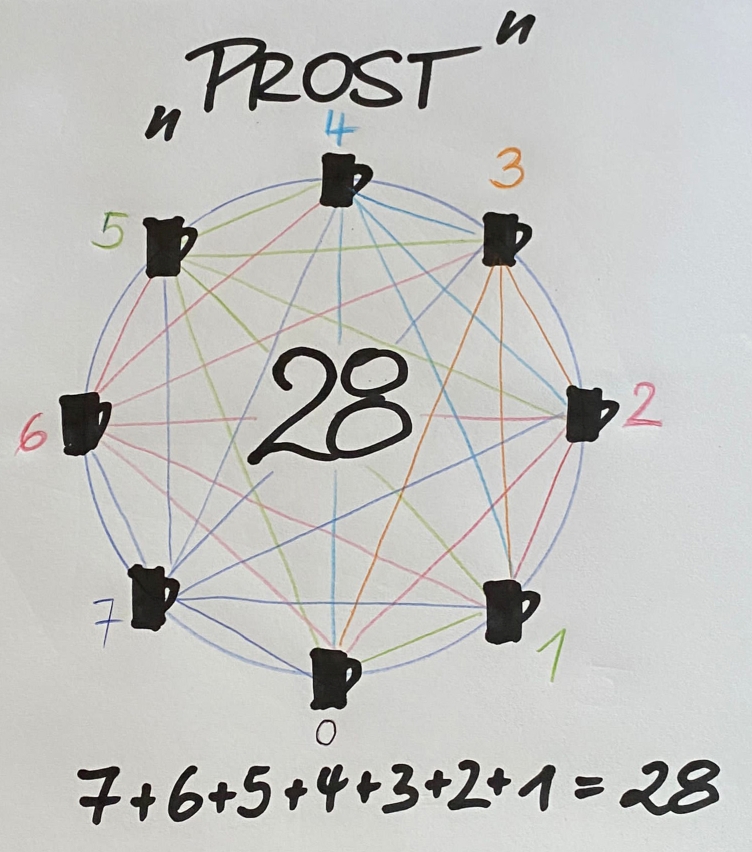 „PROST"
4
3
5
28
6
2
7
1
0
7+6+5+4+3+2+1=28